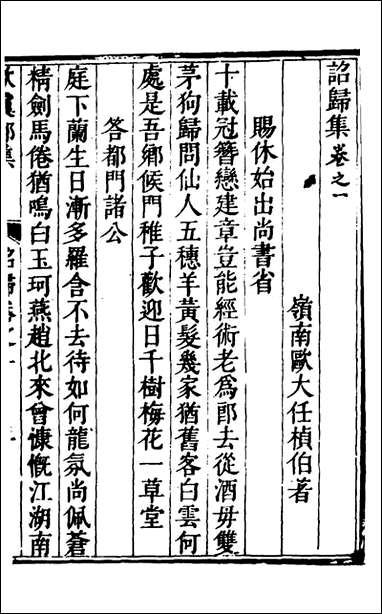 詔歸集卷之一
嶺南歐大任楨伯著
賜休始出尚書省
十載冠簪戀建章豈能經術老爲郎去從酒毋雙
茅狗歸問仙人五穗羊黃髮幾家猶舊客白雲何
處是吾鄉候門稚子歡迎日千樹梅花一草堂
答都門諸公
庭下蘭生日漸多羅含不去待如何龍氛尚佩蒼
精劍馬倦猶鳴白玉珂燕趙北來曾慷慨江湖南